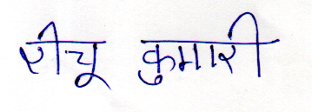 रीचू कुमारी